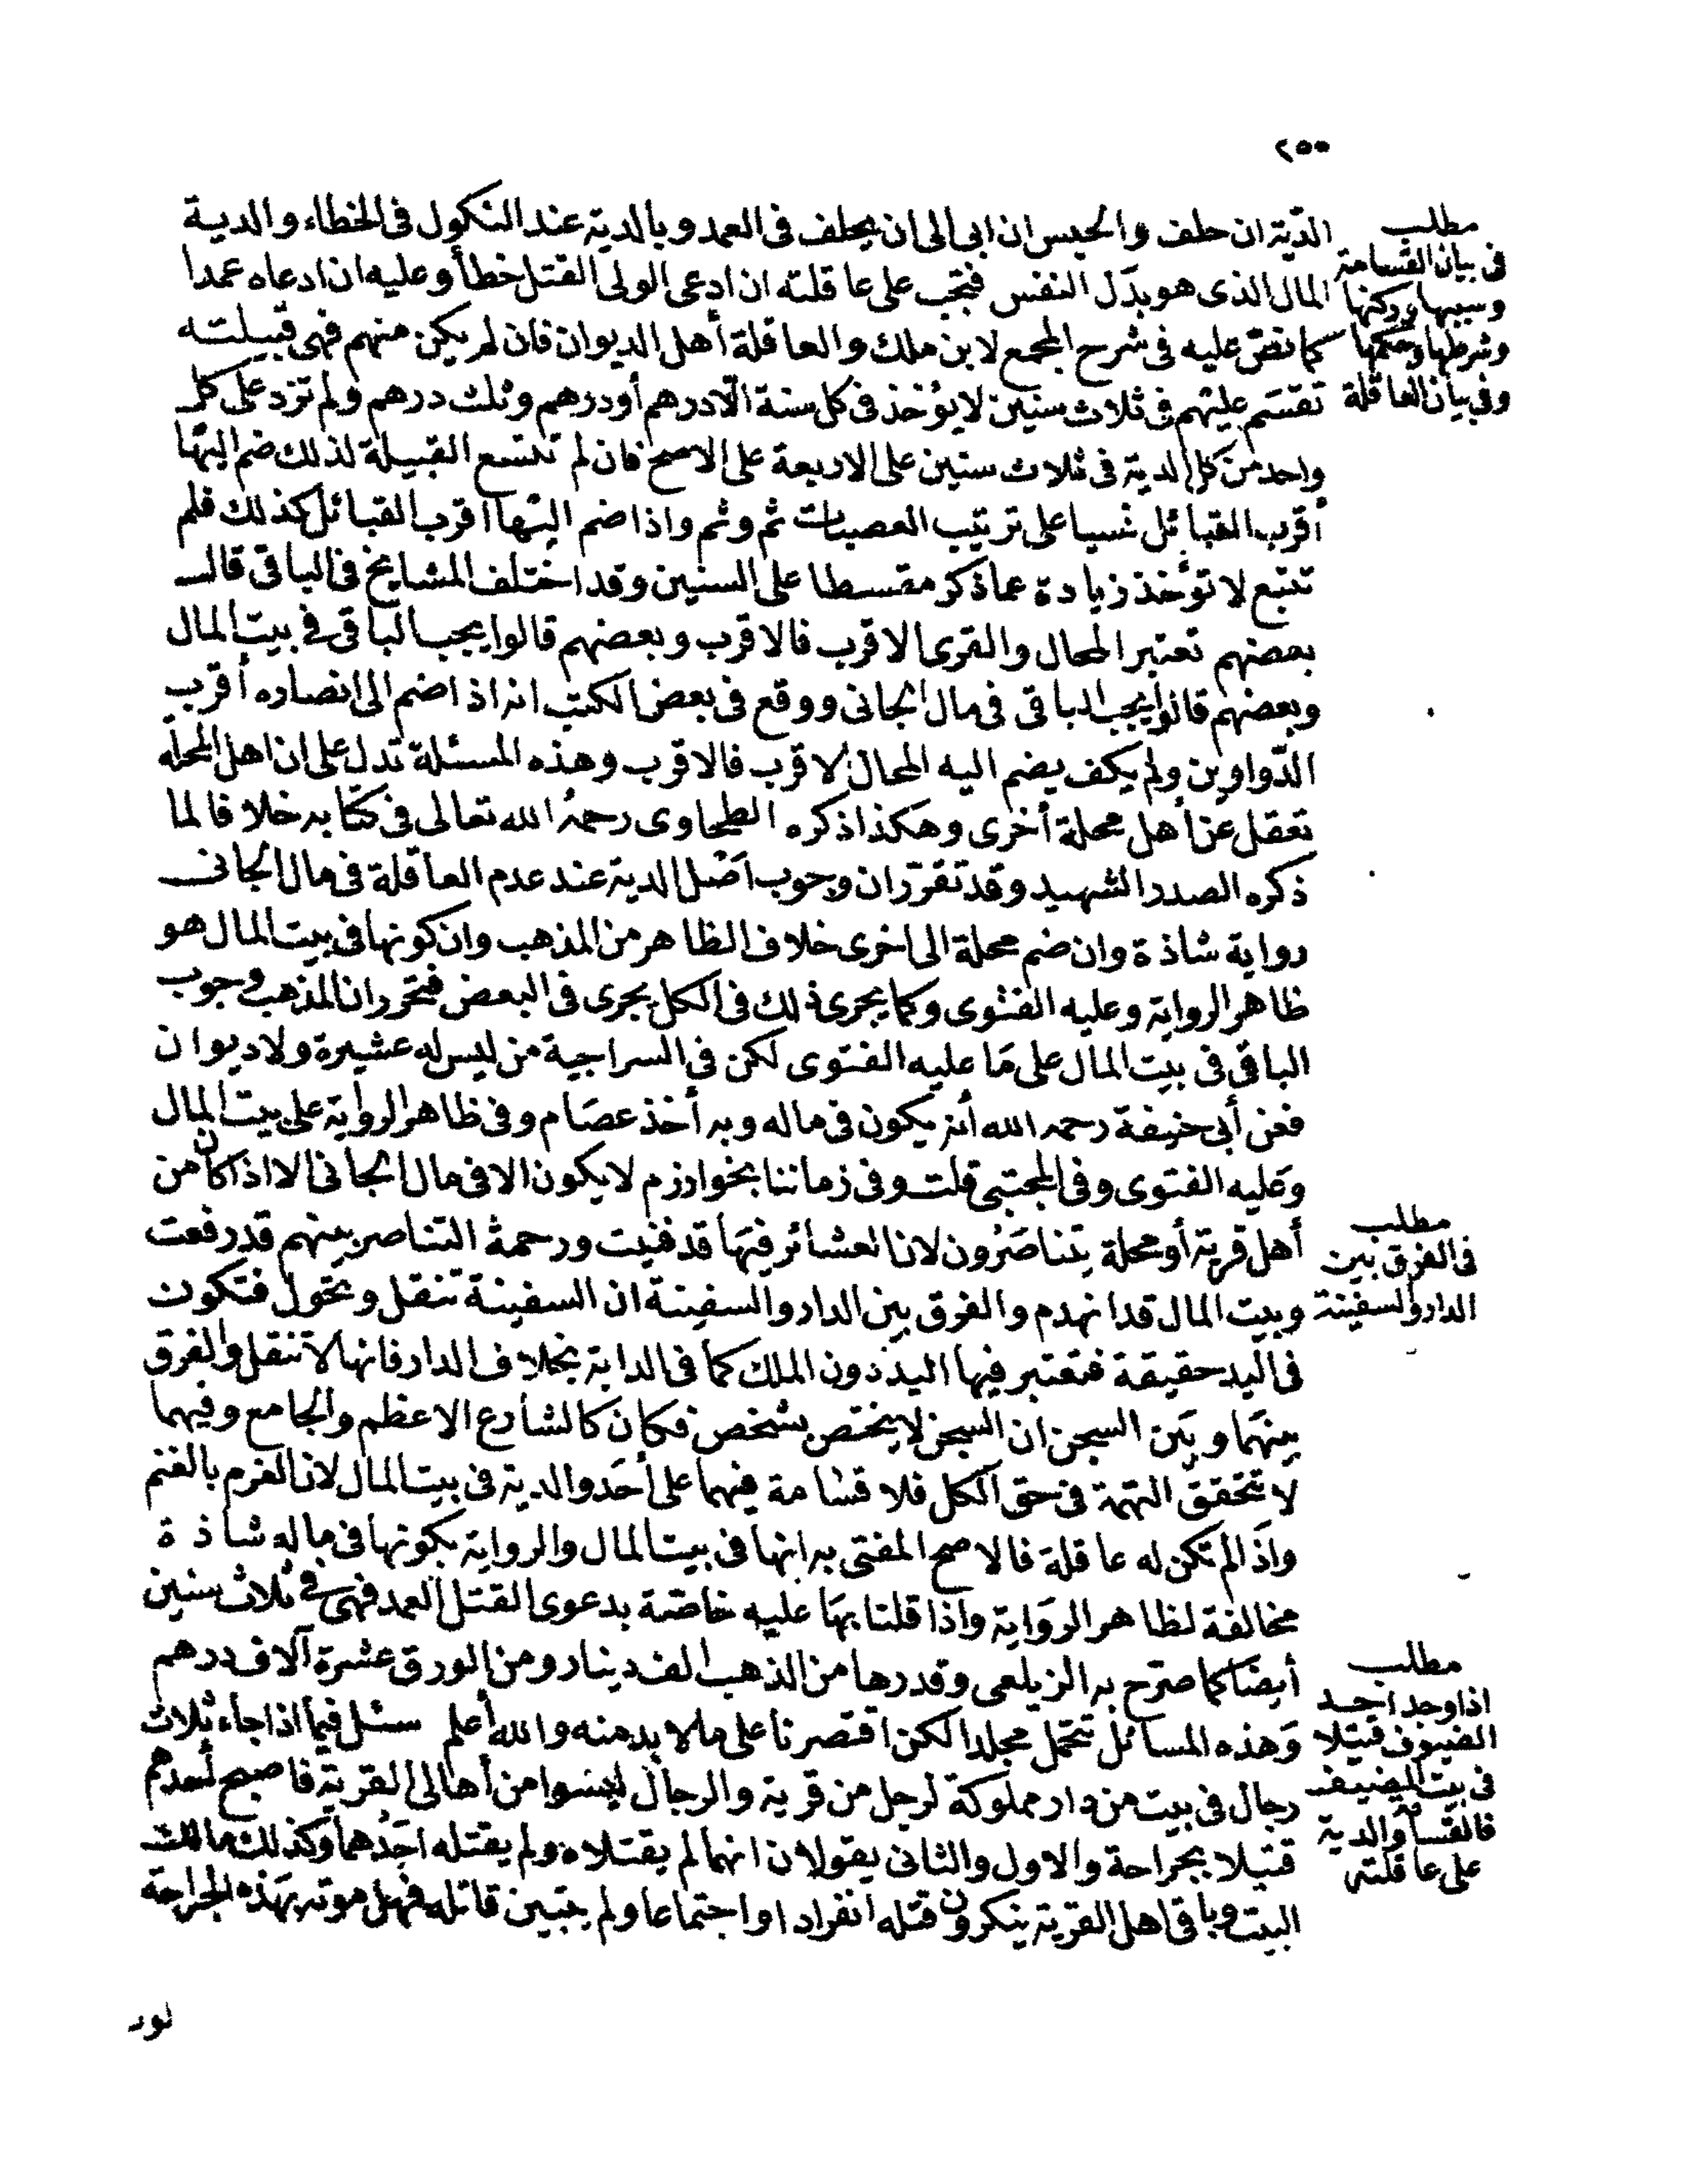 ٢٥٥
الدّية ان حلف والحبس ان ابى الى ان يحلف فى العمد وبالدية عند النكول فى الخطاء والدية
المال الذى هو بدَل النفس فتجب على عاقلته ان ادعى الولى القتل خطأ وعليه ان ادعاه عمدا
كما نصّ عليه فى شرح المجمع لابن ملك والعاقلة أهل الديوان فان لم يكن منهم فهى قبيلته
تقسَم عليهم فى ثلاث سنين لا يؤخذ فى كل سنة الّا درهم أو درهم وثلث درهم ولم تزد على كل
واحد من كل الدية فى ثلاث سنين على الاربعة على الاصح فان لم تتسع القبيلة لذلك ضم اليها
أقرب القبائل نسبا على ترتيب العصبات ثم وثم واذا ضم اليها اقرب القبائل كذلك فلم
تتبع لا تؤخذ زيادة عما ذكر مقسطا على السنين وقد اختلف المشايخ فى الباقى قال
بعضهم تعتبر المحال والقرى الاقرب فالاقرب وبعضهم قالوا يجب الباقى فى بيت المال
وبعضهم قالوا يجب الباقى فى مال الجانى ووقع فى بعض الكتب انه اذا ضم الى انصاره أقرب
الدّواوين ولم يكف يضم اليه المحال الاقرب فالاقرب وهذه المسئلة تدل على ان اهل المحلة
تعقل عن أهل محلة أخرى وهكذا ذكره الطحاوى رحمهُ الله تعالى فى كتابه خلافا لما
ذكره الصدر الشهيد وقد تقرّر ان وجوب اصْل الدية عند عدم العاقلة فى مال الجانى
رواية شاذة وان ضم محلة الى اخرى خلاف الظاهر من المذهب وان كونها فى بيت المال هو
ظاهر الرواية وعليه الفتوى وكما يجرى ذلك فى الكل يجرى فى البعض فتحرر ان المذهب وجوب
الباقى فى بيت المال على مَا عليه الفتوى لكن فى السراجية من ليس له عشيرة ولا ديوان
فعن أبى حنيفة رحمه الله أنه يكون فى ماله وبه أخذ عصَام وفى ظاهر الرواية على بيت المال
وعليه الفتوى وفى المجتبى قلت وفى زماننا بخوارزم لا يكون الا فى مال الجانى الا اذا كان من
أهل قرية أو محلة يتناصَرُون لان العشائر فيهَا قد فنيت ورحمة التناصر بينهم قد رفعت
وبيت المال قد انهدم والفرق بين الدار والسفينة ان السفينة تنقل وتحول فتكون
فى اليد حقيقة فتعتبر فيها اليد دون الملك كما فى الدابة بخلاف الدار فانها لا تنقل والفرق
بينهَما وبَين السجن ان السجن لا يختص بشخص فكان كالشارع الاعظم والجامع وفيهما
لا تتحقق التهمة فى حق الكل فلا قسَامة فيهما على أحَد والدية فى بيت المال لان الغرم بالغنم
واذا لم تكن له عاقلة فالاصح المفتى به انها فى بيت المال والرواية بكونها فى ماله شاذة
مخالفة لظاهر الروَاية واذا قلنا بهَا عليه خاصّة بدعوى القتل العمد فهى فى ثلاث سنين
أيضَا كما صرّح به الزيلعى وقدرها من الذهب الف دينار ومن الورق عشرة آلاف درهم
وَهذه المسائل تحتمل مجلدا لكن اقتصرنا على ما لا بد منه والله أعلم سئل فيما اذا جاء ثلاث
رجال فى بيت من دار مملوكة لرجل من قرية والرجال ليسوا من أهالى القرية فاصبح أحدهم
قتيلا بجراحة والاول والثانى يقولان انهما لم يقتلاه ولم يقتله احَدُهما وكذلك مالك
البيت وباقى اهل القرية ينكرون قتله انفرادا واجتماعا ولم يتبين قاتله فهل موته بهَذه الجراحة
مطلب
فى بيان القسامة
وسببها وركنها
وشرطها وحكمها
وفى بيان العاقلة
مطلب
فى الفرق بين
الدار والسفينة
مطلب
اذا وجد احد
الضيوف قتيلا
فى بيت المضيف
فالقسامة والدية
على عاقلته